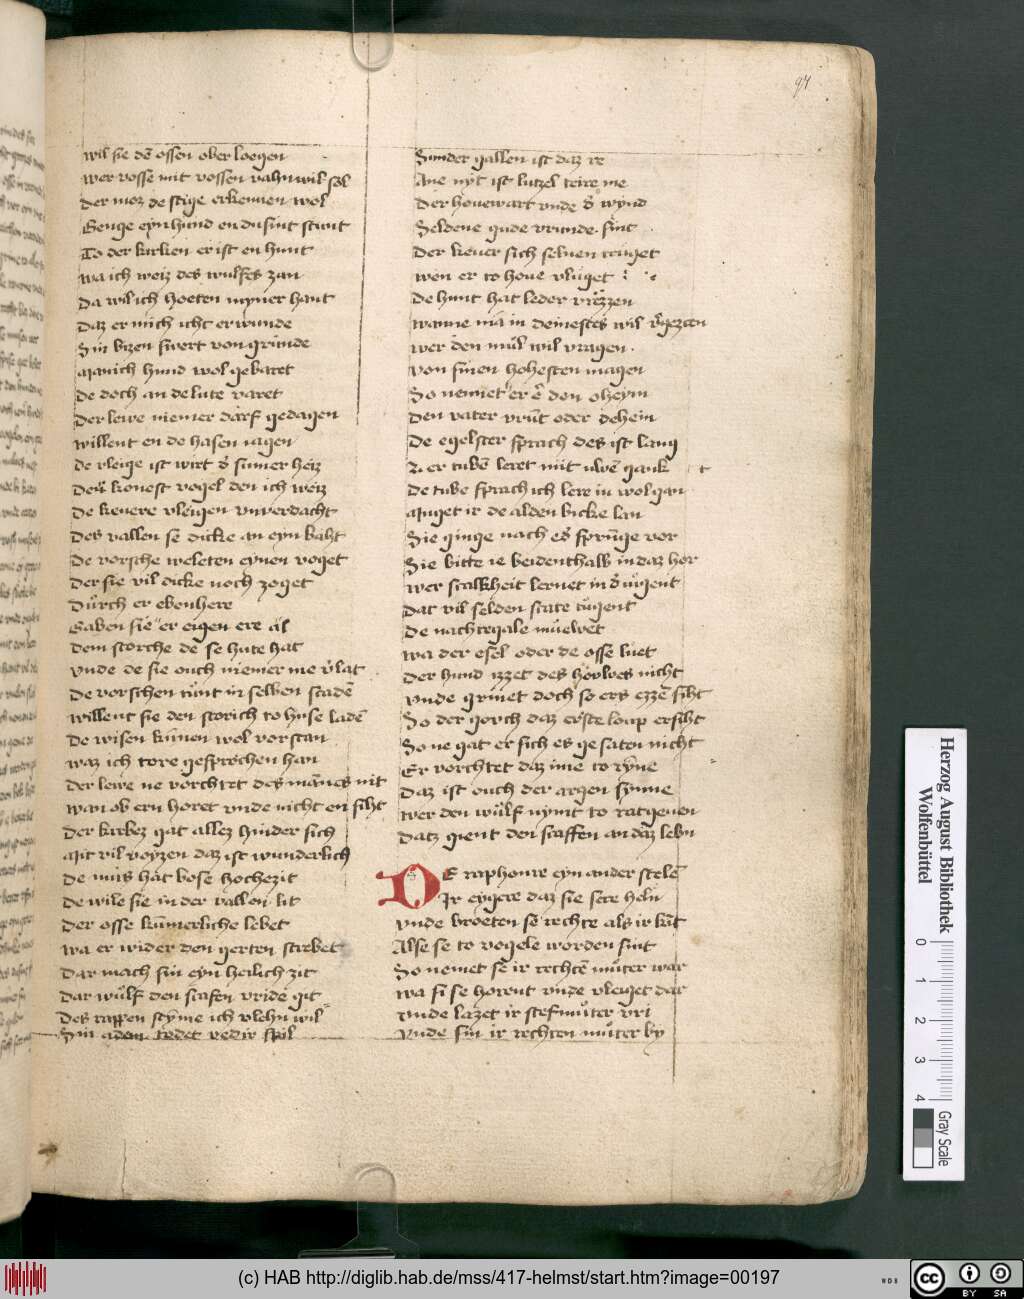 97
wil sie dē ossen ober loegen
wer rosse mit rossen vahn wil sol
der moz de stige erkennen wol
Genge eyn hund en dusint stunt
To der kirken er ist en hunt
wa ich weiz des wulfes zan
Da wil ich hoeten myner hant
Daz er mich icht er wunde
Sin bizen swert von grunde
manich hund wol gebaret
De doch an de lute varet
Der lewe niemer darf gedagen
willent en de hasen iagen
de vleige ist wirt d' sumer heiz
Der konest vogel den ich weiz
De keuere vleigen vnverdacht
Des vallen se dicke an eyn baht
De vorsche weleten eynen voget
Der sie vil dicke noch zoget
Durch er ebenhere
Gaben sie er eigen ere al
Dem storche de se hute hat
vnde de sie ouch niemer me v'lat
De vorschen tunt in selben stadē
willent sie den storich to huse ladē
De wisen kunnen wol vorstan
waz ich tore gesprochen han
Der lewe ne vorchtet des mānes nit
wan ob ern horet vnde nicht en siht
Der krebez gat allez hinder sich
Mit vil voyzen daz ist wunderlich
De mus hat bose hochezit
De wile sie in der vallen lit
Der osse kumerliche lebet
wa er wider den gerten strebet
Dar mach sin eyn heilich zit
Dar wulf den scafen vride git
Des rappen styme ich vlehn wil
Sin adem redet vedir spil
Sunder gallen ist daz re
Ane nyt ist lutzel teire me
Der houewart vnde d' wynd
Seldene gude vrunde sint
Der keuer sich seluen truget
wen er to houe vluget
De hunt hat leder vrezzen
wanne mā in deinestes wil v'gezzen
wer den mul wil vragen
von sinen hohesten magen
So nennet er ē den oheym
Den vater vrūt oder dehein
De egelster sprach des ist lang
De tube sprach ich lere in wol gan
Muget ir de alden bicke lan
Sie ginge nach es' sprūge vor
Sie bitte ie beidenthalb in daz hor
wer scalkheit lernet in d' iugent
Dat vil selden state tugent
De nachtegale muewet
wa der esel oder de osse luet
Der hund izzet des howes nicht
vnde grinet doch so ers ezzē siht
So der gouch daz erste loup ersiht
So ne gat er sich es gesaten nicht
Er vorchtet daz ime to ryne
Daz ist ouch der argen synne
wer den wulf nymt to ratgeuen
Datz gient den scaffen an daz lebn
DE raphonre eyn ander stelē
Ir eygere daz sie sere heln
vnde broeten se rechte als ir kāt
Alse se to vogele worden sint
So nemet se ir rechtē muter war
wa si se horent vnde vleuget dar
vnde lazet ir stefmuter vri
vnde sin ir rechten muter by
Herzog August Bibliothek
Wolfenbüttel
0 1 2 3 4
Gray Scale
(c) HAB http://diglib.hab.de/mss/417-helmst/start.htm?image=00197
WDB
cc BY SA